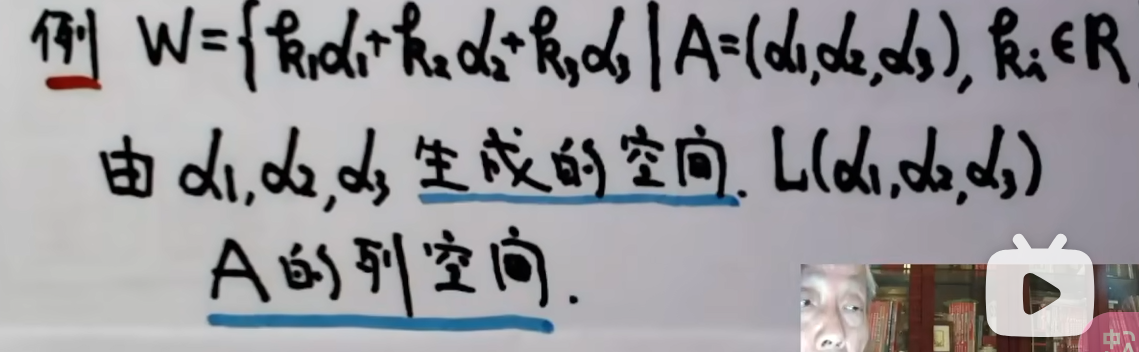 例 W={k₁α₁+k₂α₂+k₃α₃|A=(α₁,α₂,α₃), kᵢ∈R
由 α₁,α₂,α₃ 生成的空间. L(α₁,α₂,α₃)
A的列空间.
中